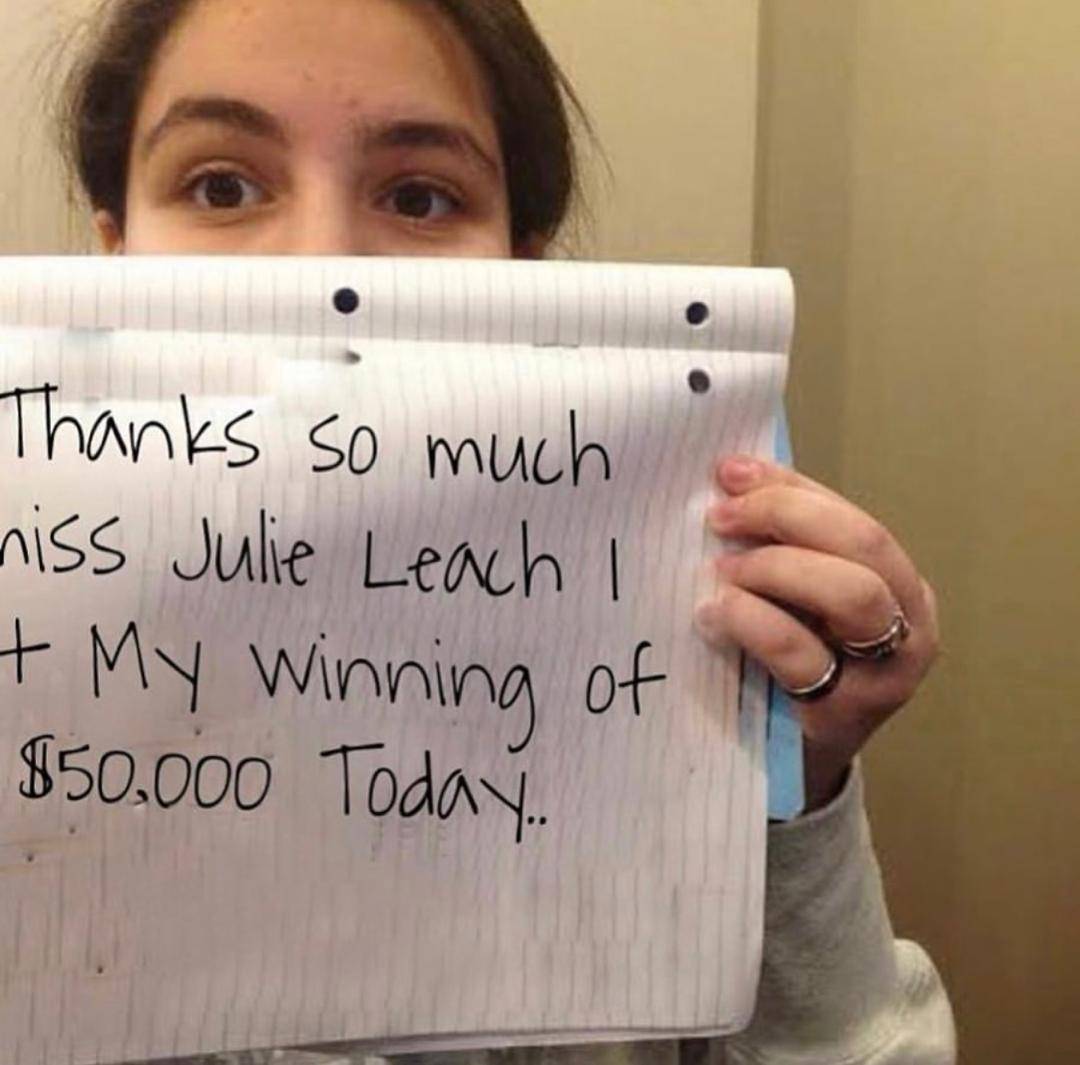 Thanks so much
niss Julie Leach I
+ My winning of
$50,000 Today..